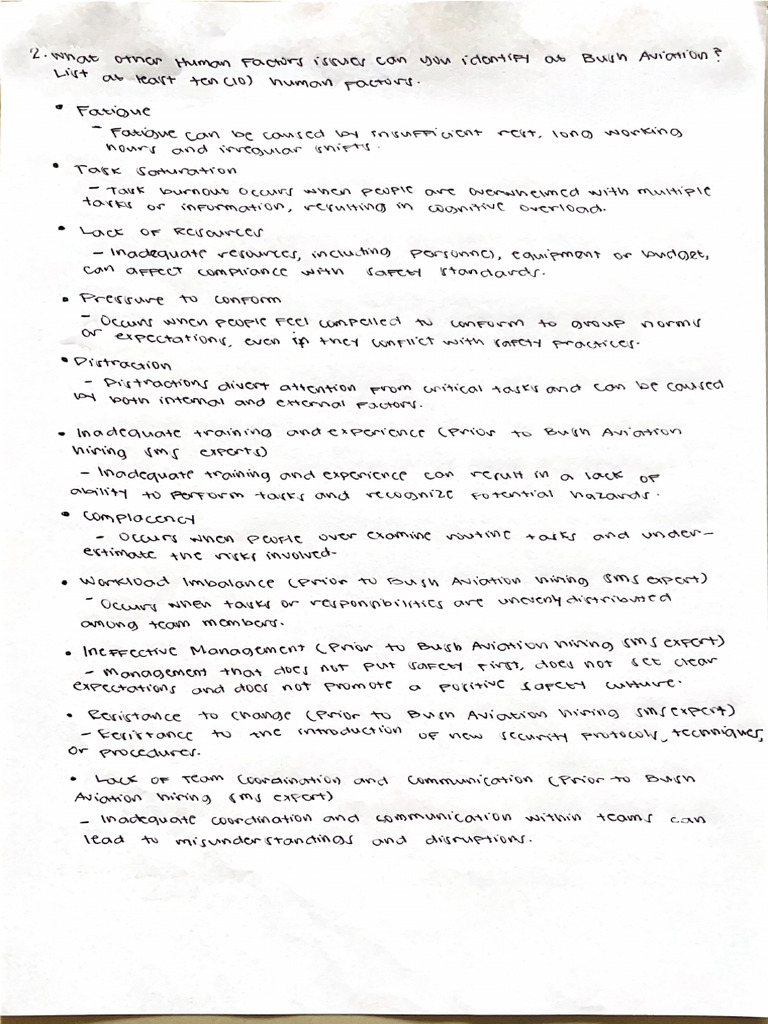 2. What other Human Factors issues can you identify at Bush Aviation?
List at least ten (10) human factors.
• Fatigue
– Fatigue can be caused by insufficient rest, long working
hours and irregular shifts.
• Task Saturation
– Task burnout occurs when people are overwhelmed with multiple
tasks or information, resulting in cognitive overload.
• Lack of Resources
– Inadequate resources, including personnel, equipment or budget,
can affect compliance with safety standards.
• Pressure to conform
– Occurs when people feel compelled to conform to group norms
or expectations, even if they conflict with safety practices.
• Distraction
– Distractions divert attention from critical tasks and can be caused
by both internal and external factors.
• Inadequate training and experience (Prior to Bush Aviation
hiring SMS experts)
– Inadequate training and experience can result in a lack of
ability to perform tasks and recognize potential hazards.
• Complacency
– Occurs when people over examine routine tasks and under-
estimate the risks involved-
• Workload Imbalance (Prior to Bush Aviation hining SMS expert)
– Occurs when tasks or responsibilities are unevenly distributed
among team members.
• Ineffective Management (Prior to Bush Aviation hiring SMS expert)
– Management that does not put safety first, does not set clear
expectations and does not promote a positive safety culture.
• Resistance to change (Prior to Bush Aviation hiring SMS expert)
– Resistance to the introduction of new security protocols, techniques,
or procedures.
• Lack of Team Coordination and Communication (Prior to Bush
Aviation hiring SMS expert)
– Inadequate coordination and communication within teams can
lead to misunderstandings and disruptions.